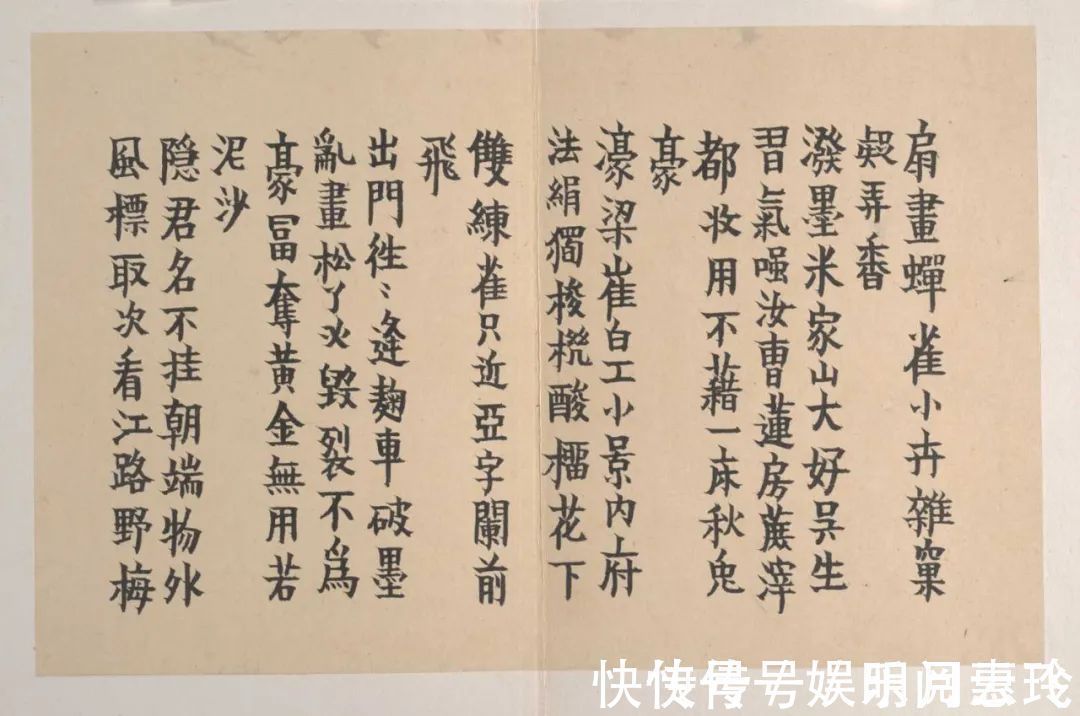 扇畫蟬雀小卉雜窠
弄香
潑墨米家山大好吳生
習氣嗤汝曹蓮房蔗滓
都妆用不藉一床秋兔
豪
濠梁崔白工小景内府
法絹獨梭梲酸橊花下
雙練雀只近亞字闌前
飛
出門徃〻逢麹車破墨
亂畫松了火毀裂不爲
豪冨奪黄金無用若
泥沙
隐君名不挂朝端物外
風標取次看江路野梅
快传号